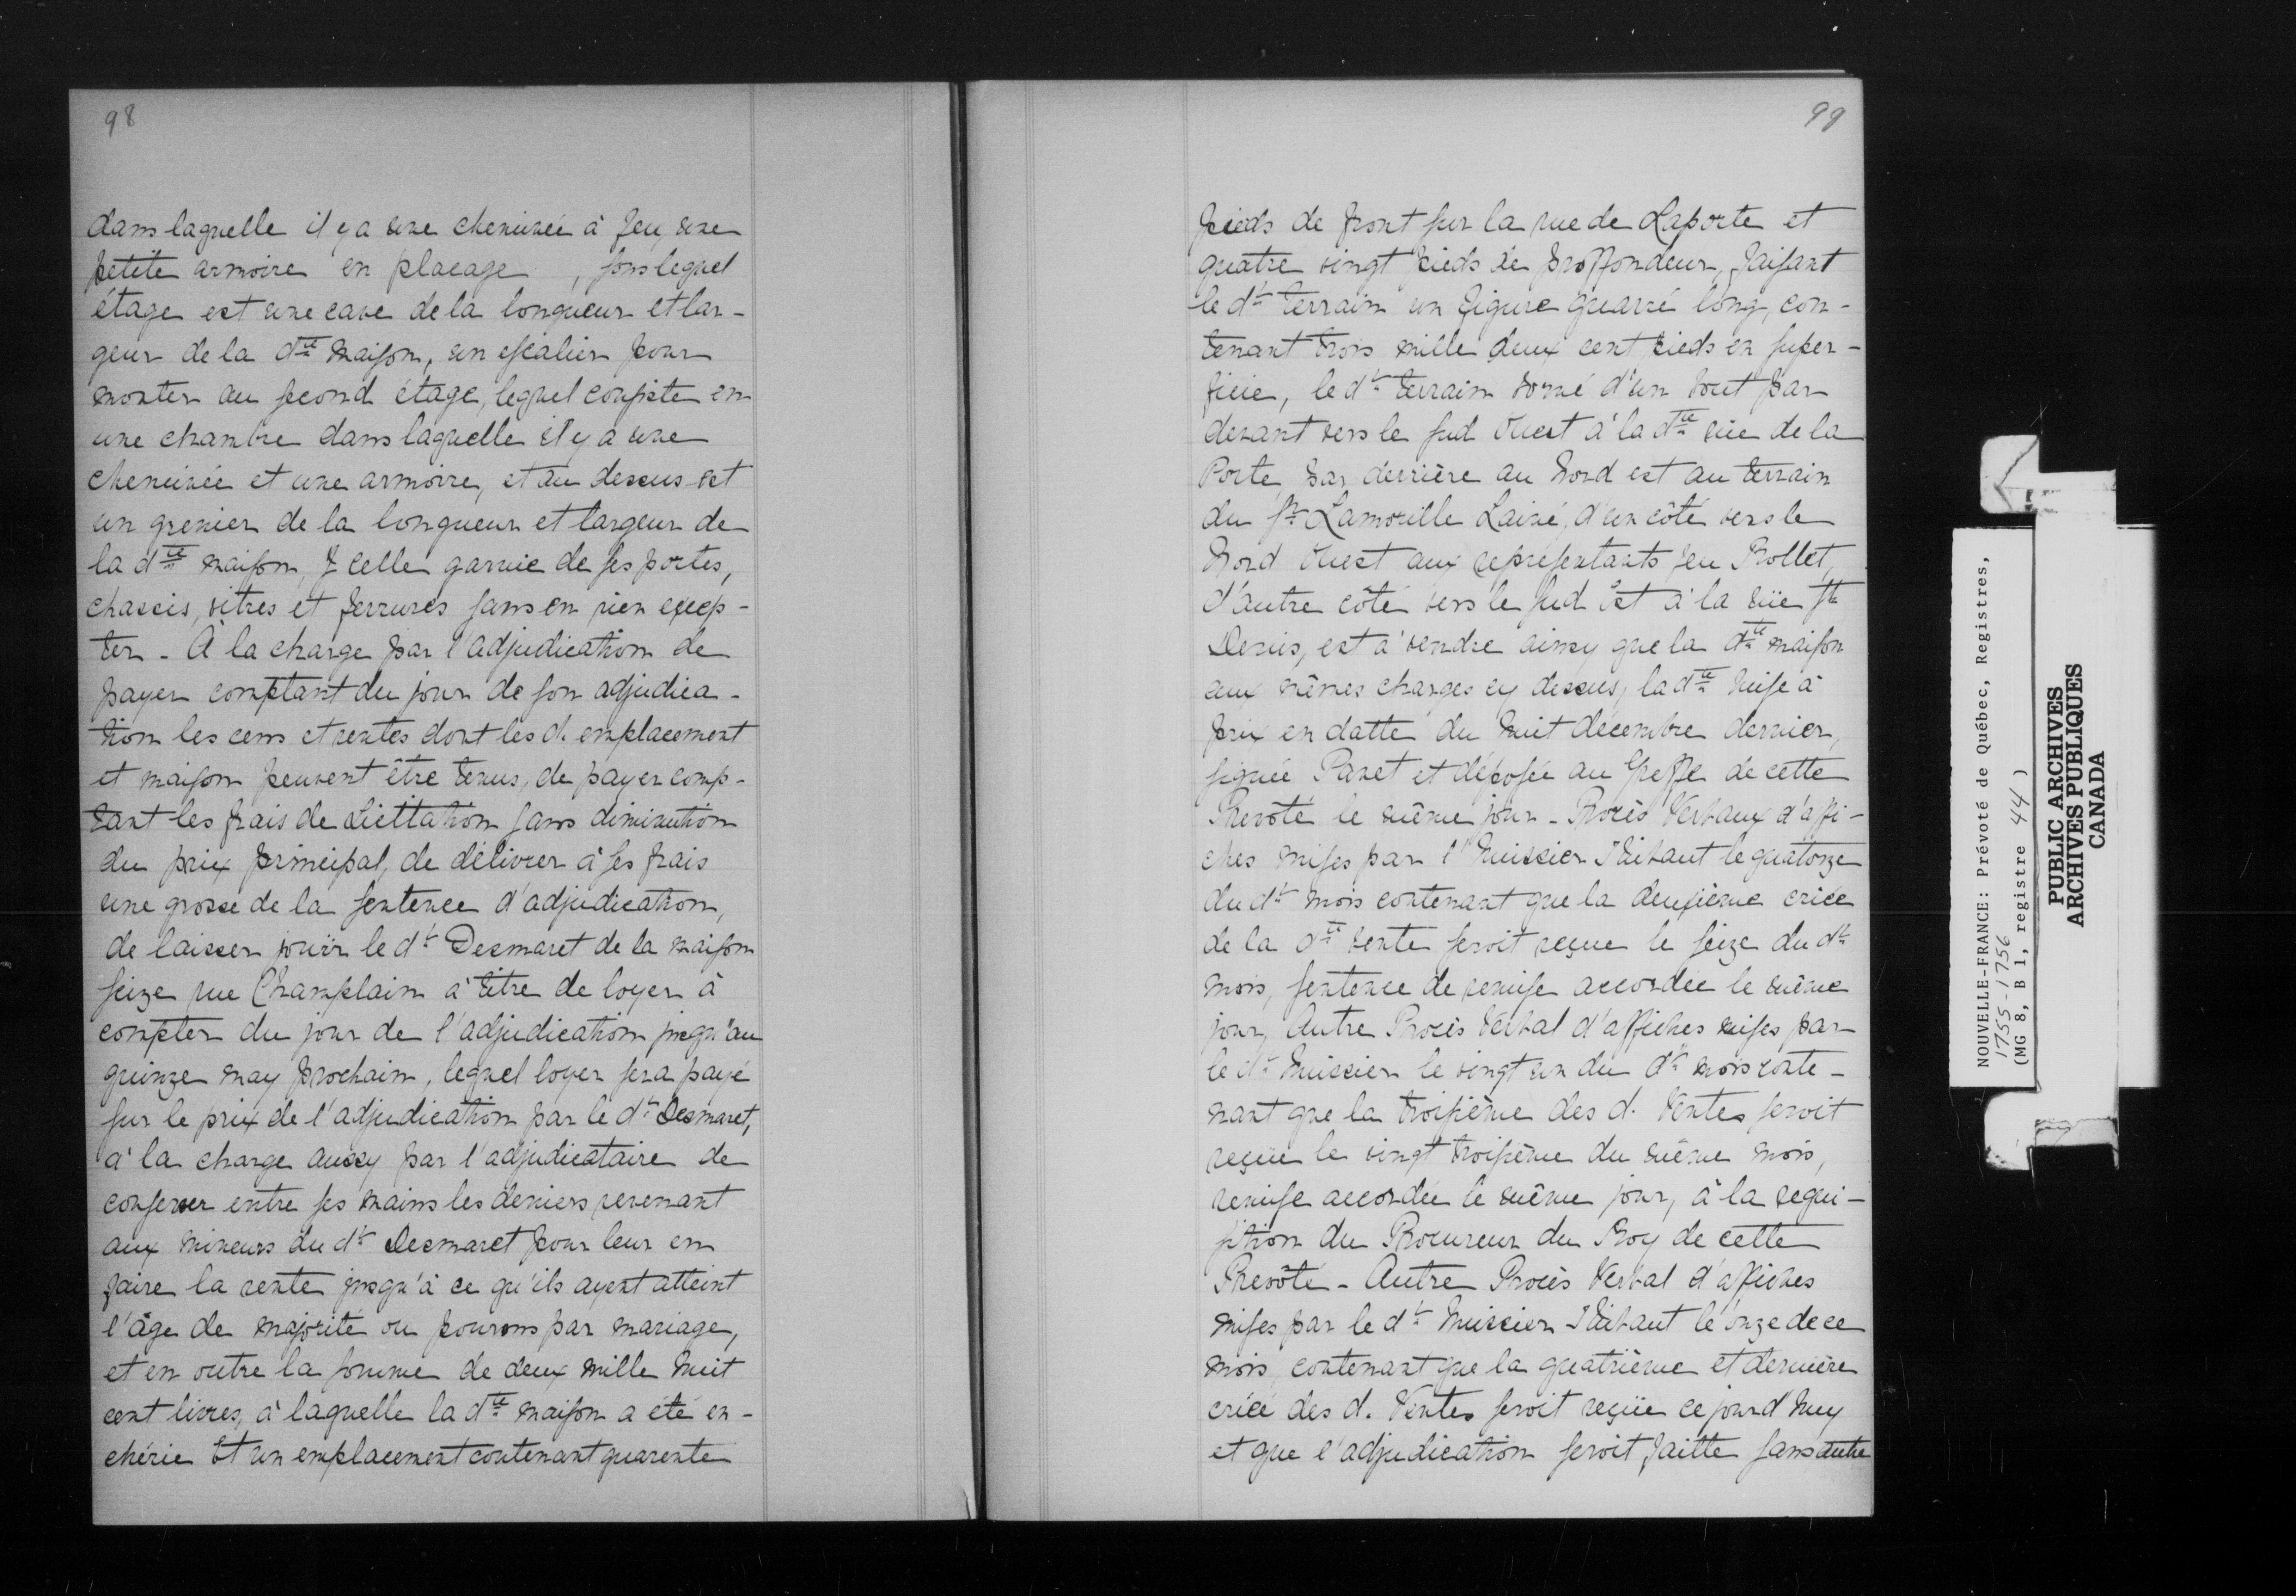 98
dans laquelle il y a une cheminée à feu, une
petite armoire en placage , sous lequel
étage est une cave de la longueur et lar-
geur de la dte maison, un escalier pour
monter au second étage, lequel consiste en
une chambre dans laquelle il y a une
cheminée et une armoire, et au dessus est
un grenier de la longueur et largeur de
la dte maison, Y celle garnie de ses portes,
chassis, vitres et ferrures sans en rien excep-
ter - À la charge par l'adjudication de
payer comptant du jour de son adjudica-
tion les cens et rentes dont les d. emplacement
et maison peuvent être tenus, de payer comp-
tant les frais de Licittation sans diminution
du prix principal, de délivrer à ses frais
une grosse de la sentence d'adjudication,
de laisser jouïr le dt Desmaret de la maison
seize rue Champlain à titre de loyer à
compter du jour de l'adjudication jusqu'au
quinze may prochain, lequel loyer sera payé
sur le prix de l'adjudication par le dt Desmaret,
à la charge aussy par l'adjudicataire de
conserver entre ses mains les deniers revenant
aux mineurs du dt Desmaret pour leur en
faire la rente jusqu'à ce qu'ils ayent atteint
l'âge de majorité ou pourvus par mariage,
et en outre la somme de deux mille huit
cent livres, à laquelle la dte maison a été en-
chérie Et un emplacement contenant quarente
99
pieds de front sur la rue de Laporte et
quatre vingt pieds de proffondeur, faisant
le dt terrain un figure quarré long, con-
tenant trois mille deux cent pieds en super-
ficie, le dt terrain borné d'un bout par
devant vers le sud Ouest à la dte rüe de la
Porte, par derrière au Nord est au terrain
du Sr Lamorille Lainé, d'un côté vers le
Nord Ouest aux représentants feu Rollet,
d'autre côté vers le sud Est à la rüe St
Denis, est à vendre ainsy que la dte maison
aux mêmes charges cy dessus, la dte mise à
prix en datte du huit décembre dernier,
signée Panet et déposée au Greffe de cette
Prevoté le même jour - Procès Verbaux d'affi-
ches mises par l'huissier Thibault le quatorze
du dt mois contenant que la deuxième criée
de la dte vente seroit reçue le seize du dt
mois, sentence de remise accordée le même
jour, Autre Procès Verbal d'affiches mises par
le dt huissier le vingt un du dt mois conte-
nant que la troisième des d. Ventes seroit
reçue le vingt troisième du même mois,
remise accordée le même jour, à la requi-
sition du Procureur du Roy de cette
Prevôté - Autre Procès Verbal d'affiches
mises par le dt huissier Thibaut le onze de ce
mois, contenant que la quatrième et dernière
criée des d. Ventes seroit reçüe ce jourd'huy
et que l'adjudication seroit faitte sans autre
NOUVELLE-FRANCE: Prévoté de Québec, Registres,
1755-1756
(MG 8, B 1, registre 44)
PUBLIC ARCHIVES
ARCHIVES PUBLIQUES
CANADA